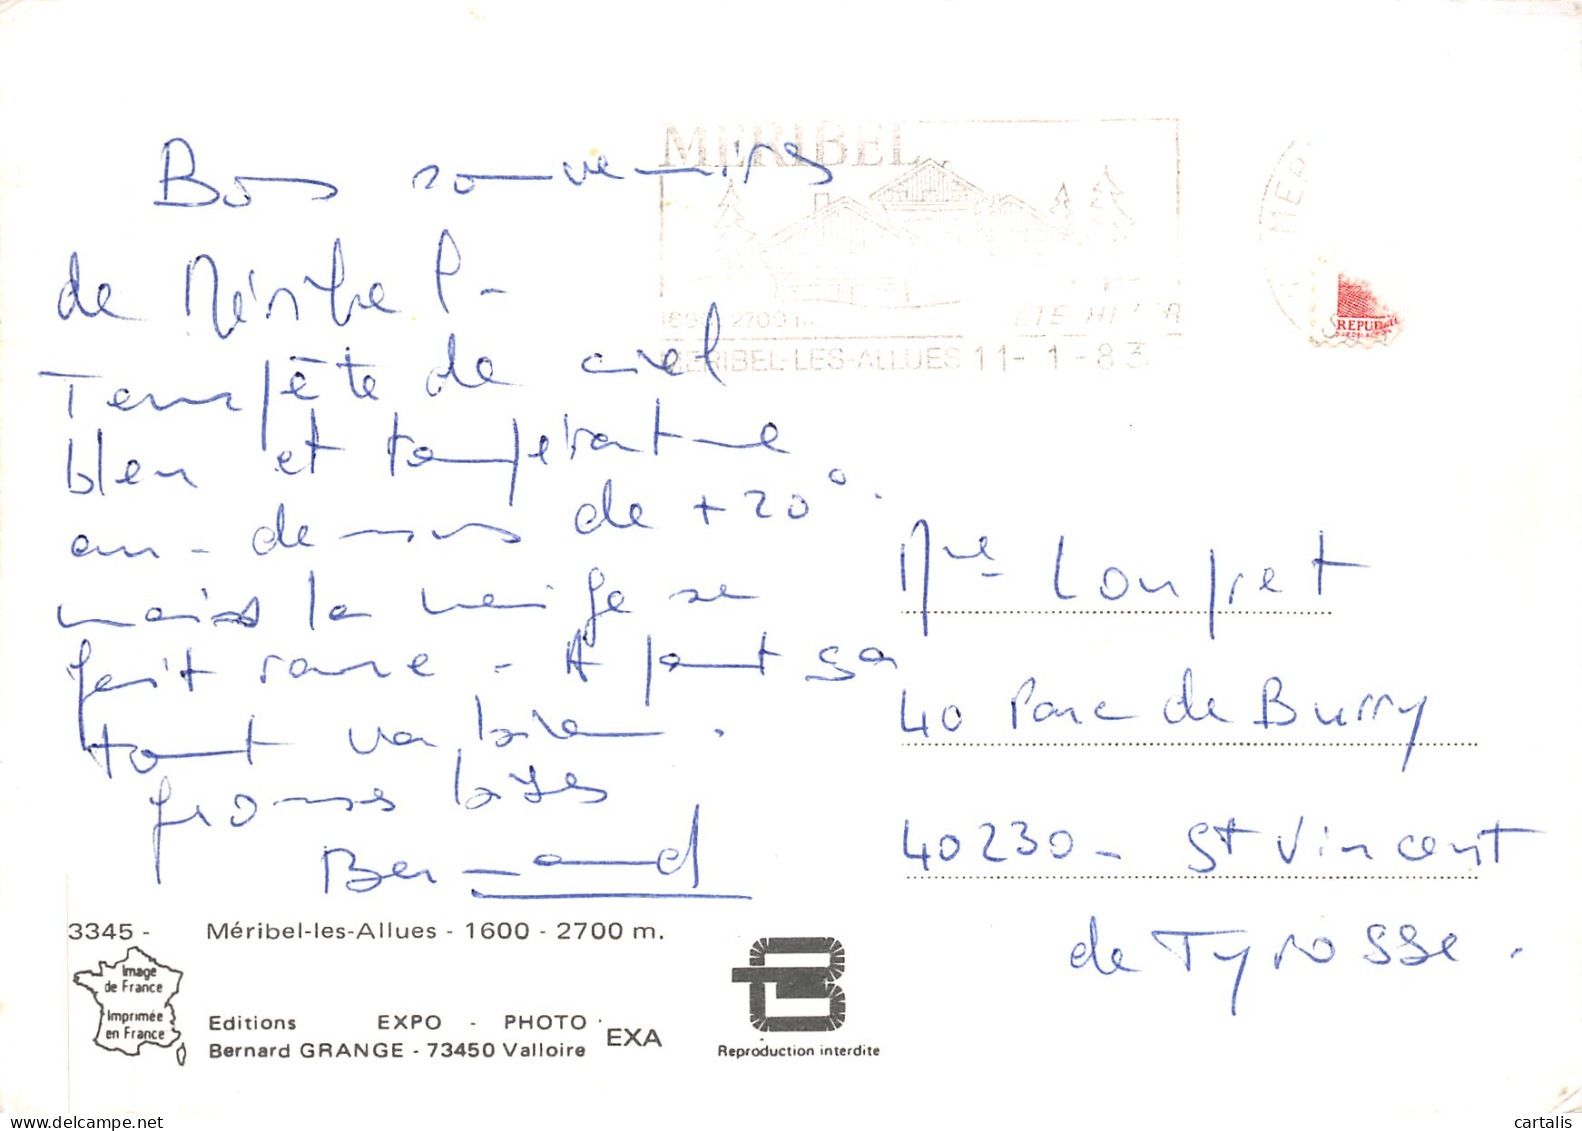 Bons souvenirs
de Méribel -
Tempête de ciel
bleu et température
au-dessus de +20°.
mais la neige se
fait rare - A part ça
tout va bien.
grosses bises
Bernard
MERIBEL
1600 2700 m
ETE HIVER
MERIBEL-LES-ALLUES 11-1-83
REPU
Mme Loupret
40 Parc de Burry
40230 - St Vincent
de Tyrosse.
3345 - Méribel-les-Allues - 1600 - 2700 m.
Image
de France
Imprimée
en France
Editions EXPO - PHOTO
Bernard GRANGE - 73450 Valloire
EXA
Reproduction interdite
cartalis